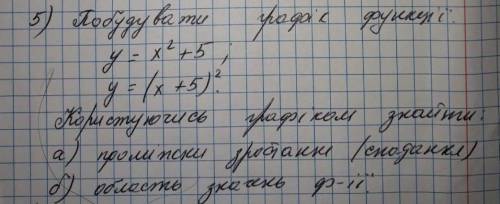 5) Побудувати графік функції:
y = x² + 5 ;
y = (x + 5)².
Користуючись графіком знайти:
а) проміжки зростання (спадання)
б) область значень ф-ії.